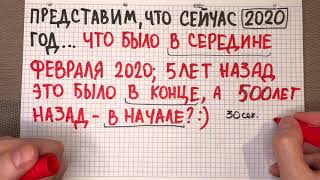 ПРЕДСТАВИМ, ЧТО СЕЙЧАС 2020
ГОД... ЧТО БЫЛО В СЕРЕДИНЕ
ФЕВРАЛЯ 2020; 5 ЛЕТ НАЗАД
ЭТО БЫЛО В КОНЦЕ, А 500 ЛЕТ
НАЗАД - В НАЧАЛЕ? :) 30 сек.